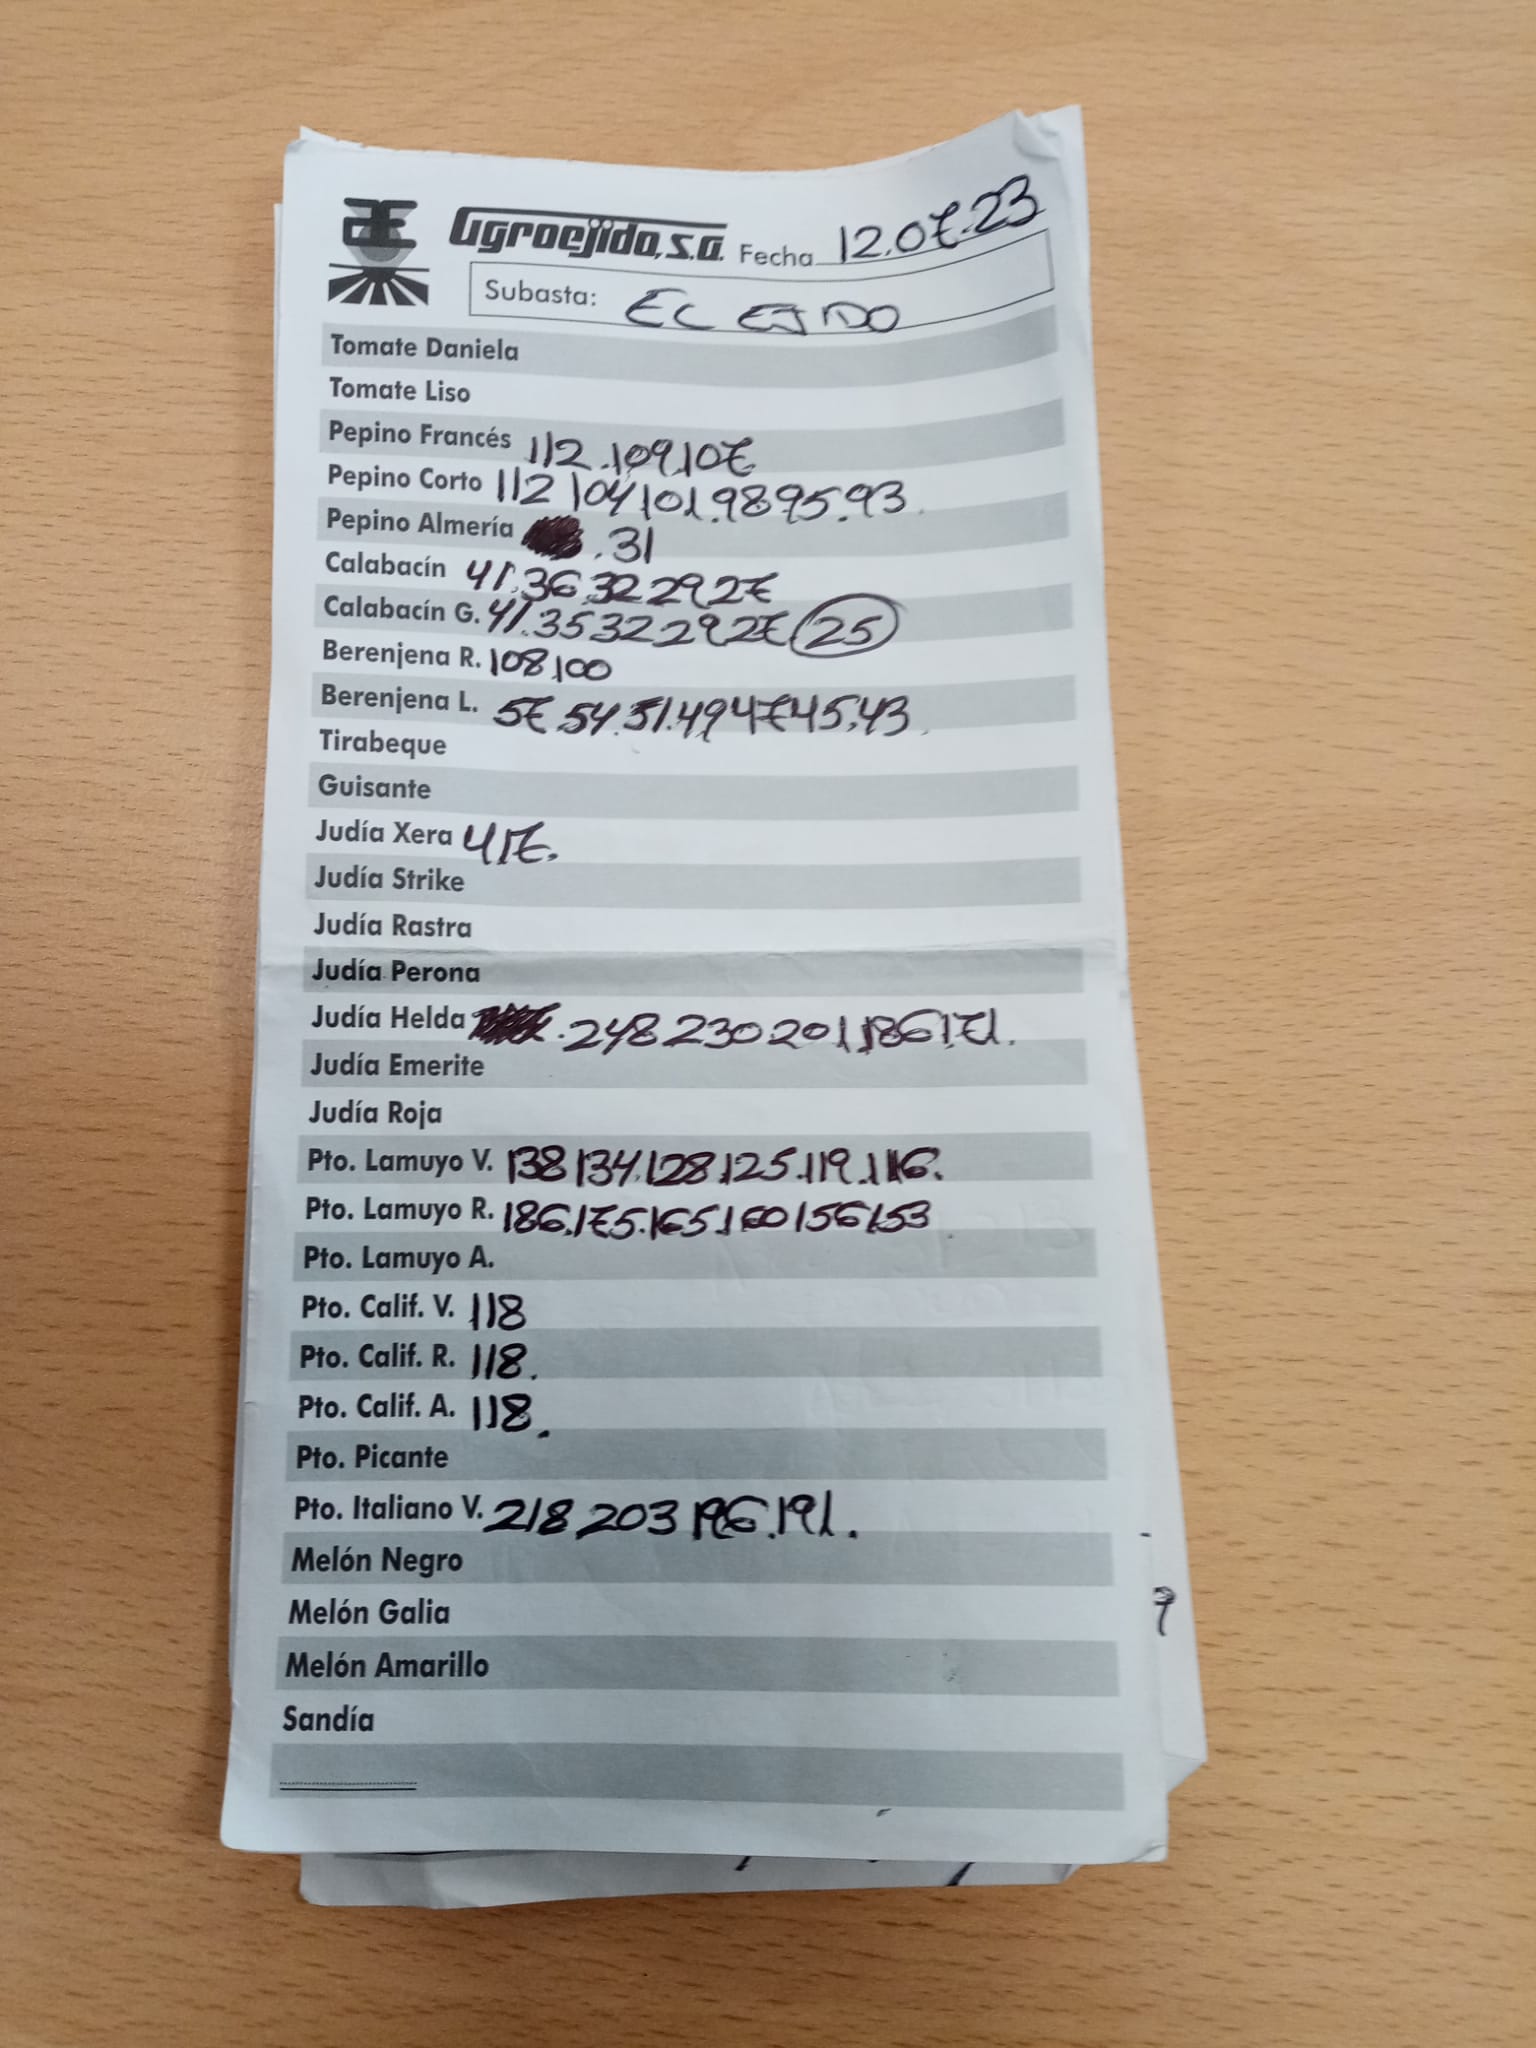 Agroejido, S.A. Fecha 12.07.23
Subasta: EL EJIDO
Tomate Daniela
Tomate Liso
Pepino Francés 112.109.107
Pepino Corto 112 104 101.98 95.93.
Pepino Almería .31
Calabacín 41.36.32 29.27
Calabacín G. 41.35 32 29.27 25
Berenjena R. 108.100
Berenjena L. 57.54.51.49 47 45.43.
Tirabeque
Guisante
Judía Xera 417.
Judía Strike
Judía Rastra
Judía Perona
Judía Helda .248 230 201 186 171.
Judía Emerite
Judía Roja
Pto. Lamuyo V. 138 134.128.125.119.116.
Pto. Lamuyo R. 186.175.165.160 156 153
Pto. Lamuyo A.
Pto. Calif. V. 118
Pto. Calif. R. 118.
Pto. Calif. A. 118.
Pto. Picante
Pto. Italiano V. 218 203 196.191.
Melón Negro
Melón Galia
Melón Amarillo
Sandía